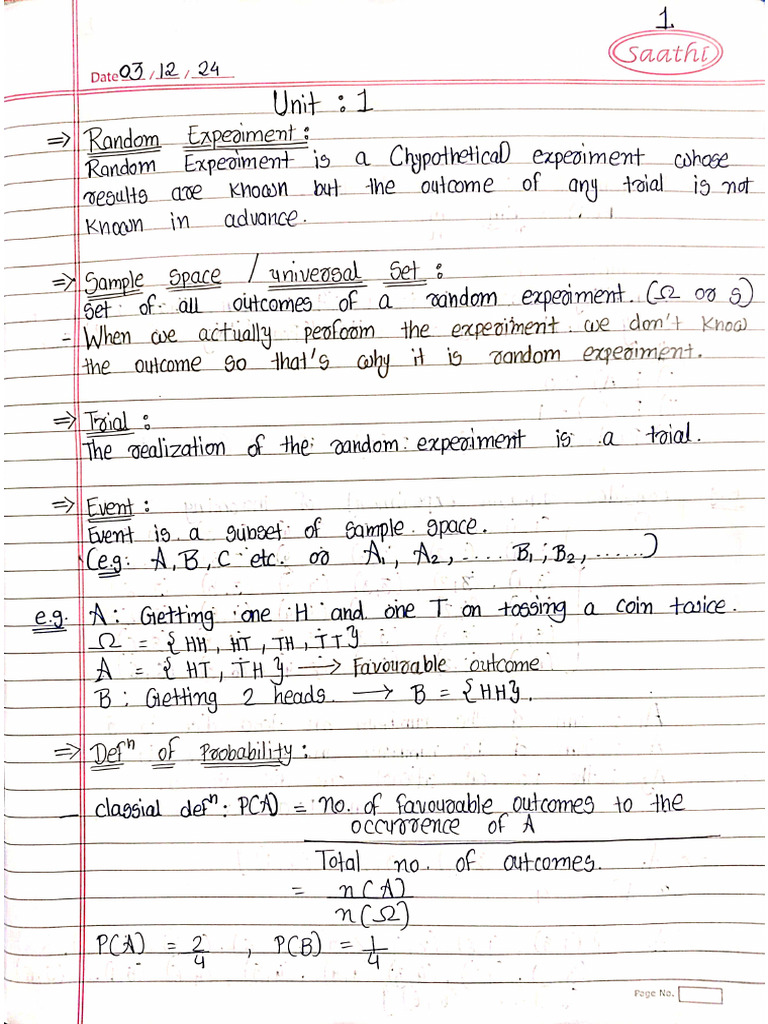 1.
Saathi
Date 03 / 12 / 24
Unit : 1
⇒ Random Experiment :
Random Experiment is a (hypothetical) experiment whose
results are known but the outcome of any trial is not
known in advance.
⇒ Sample Space / universal Set :
Set of all outcomes of a random experiment. (Ω or S)
- When we actually perform the experiment we don't know
the outcome so that's why it is random experiment.
⇒ Trial :
The realization of the random experiment is a trial.
⇒ Event :
Event is a subset of sample space.
(e.g: A, B, C etc. or A₁, A₂, ..... B₁, B₂, ......)
e.g. A : Getting one H and one T on tossing a coin twice.
Ω = {HH, HT, TH, TT}
A = {HT, TH} ⟶ Favourable outcome
B : Getting 2 heads ⟶ B = {HH}.
⇒ Defⁿ of Probability :
- classial defⁿ: P(A) = no. of favourable outcomes to the
occurrence of A
Total no. of outcomes.
= n(A)
n(Ω)
P(A) = 2/4 , P(B) = 1/4
Page No.